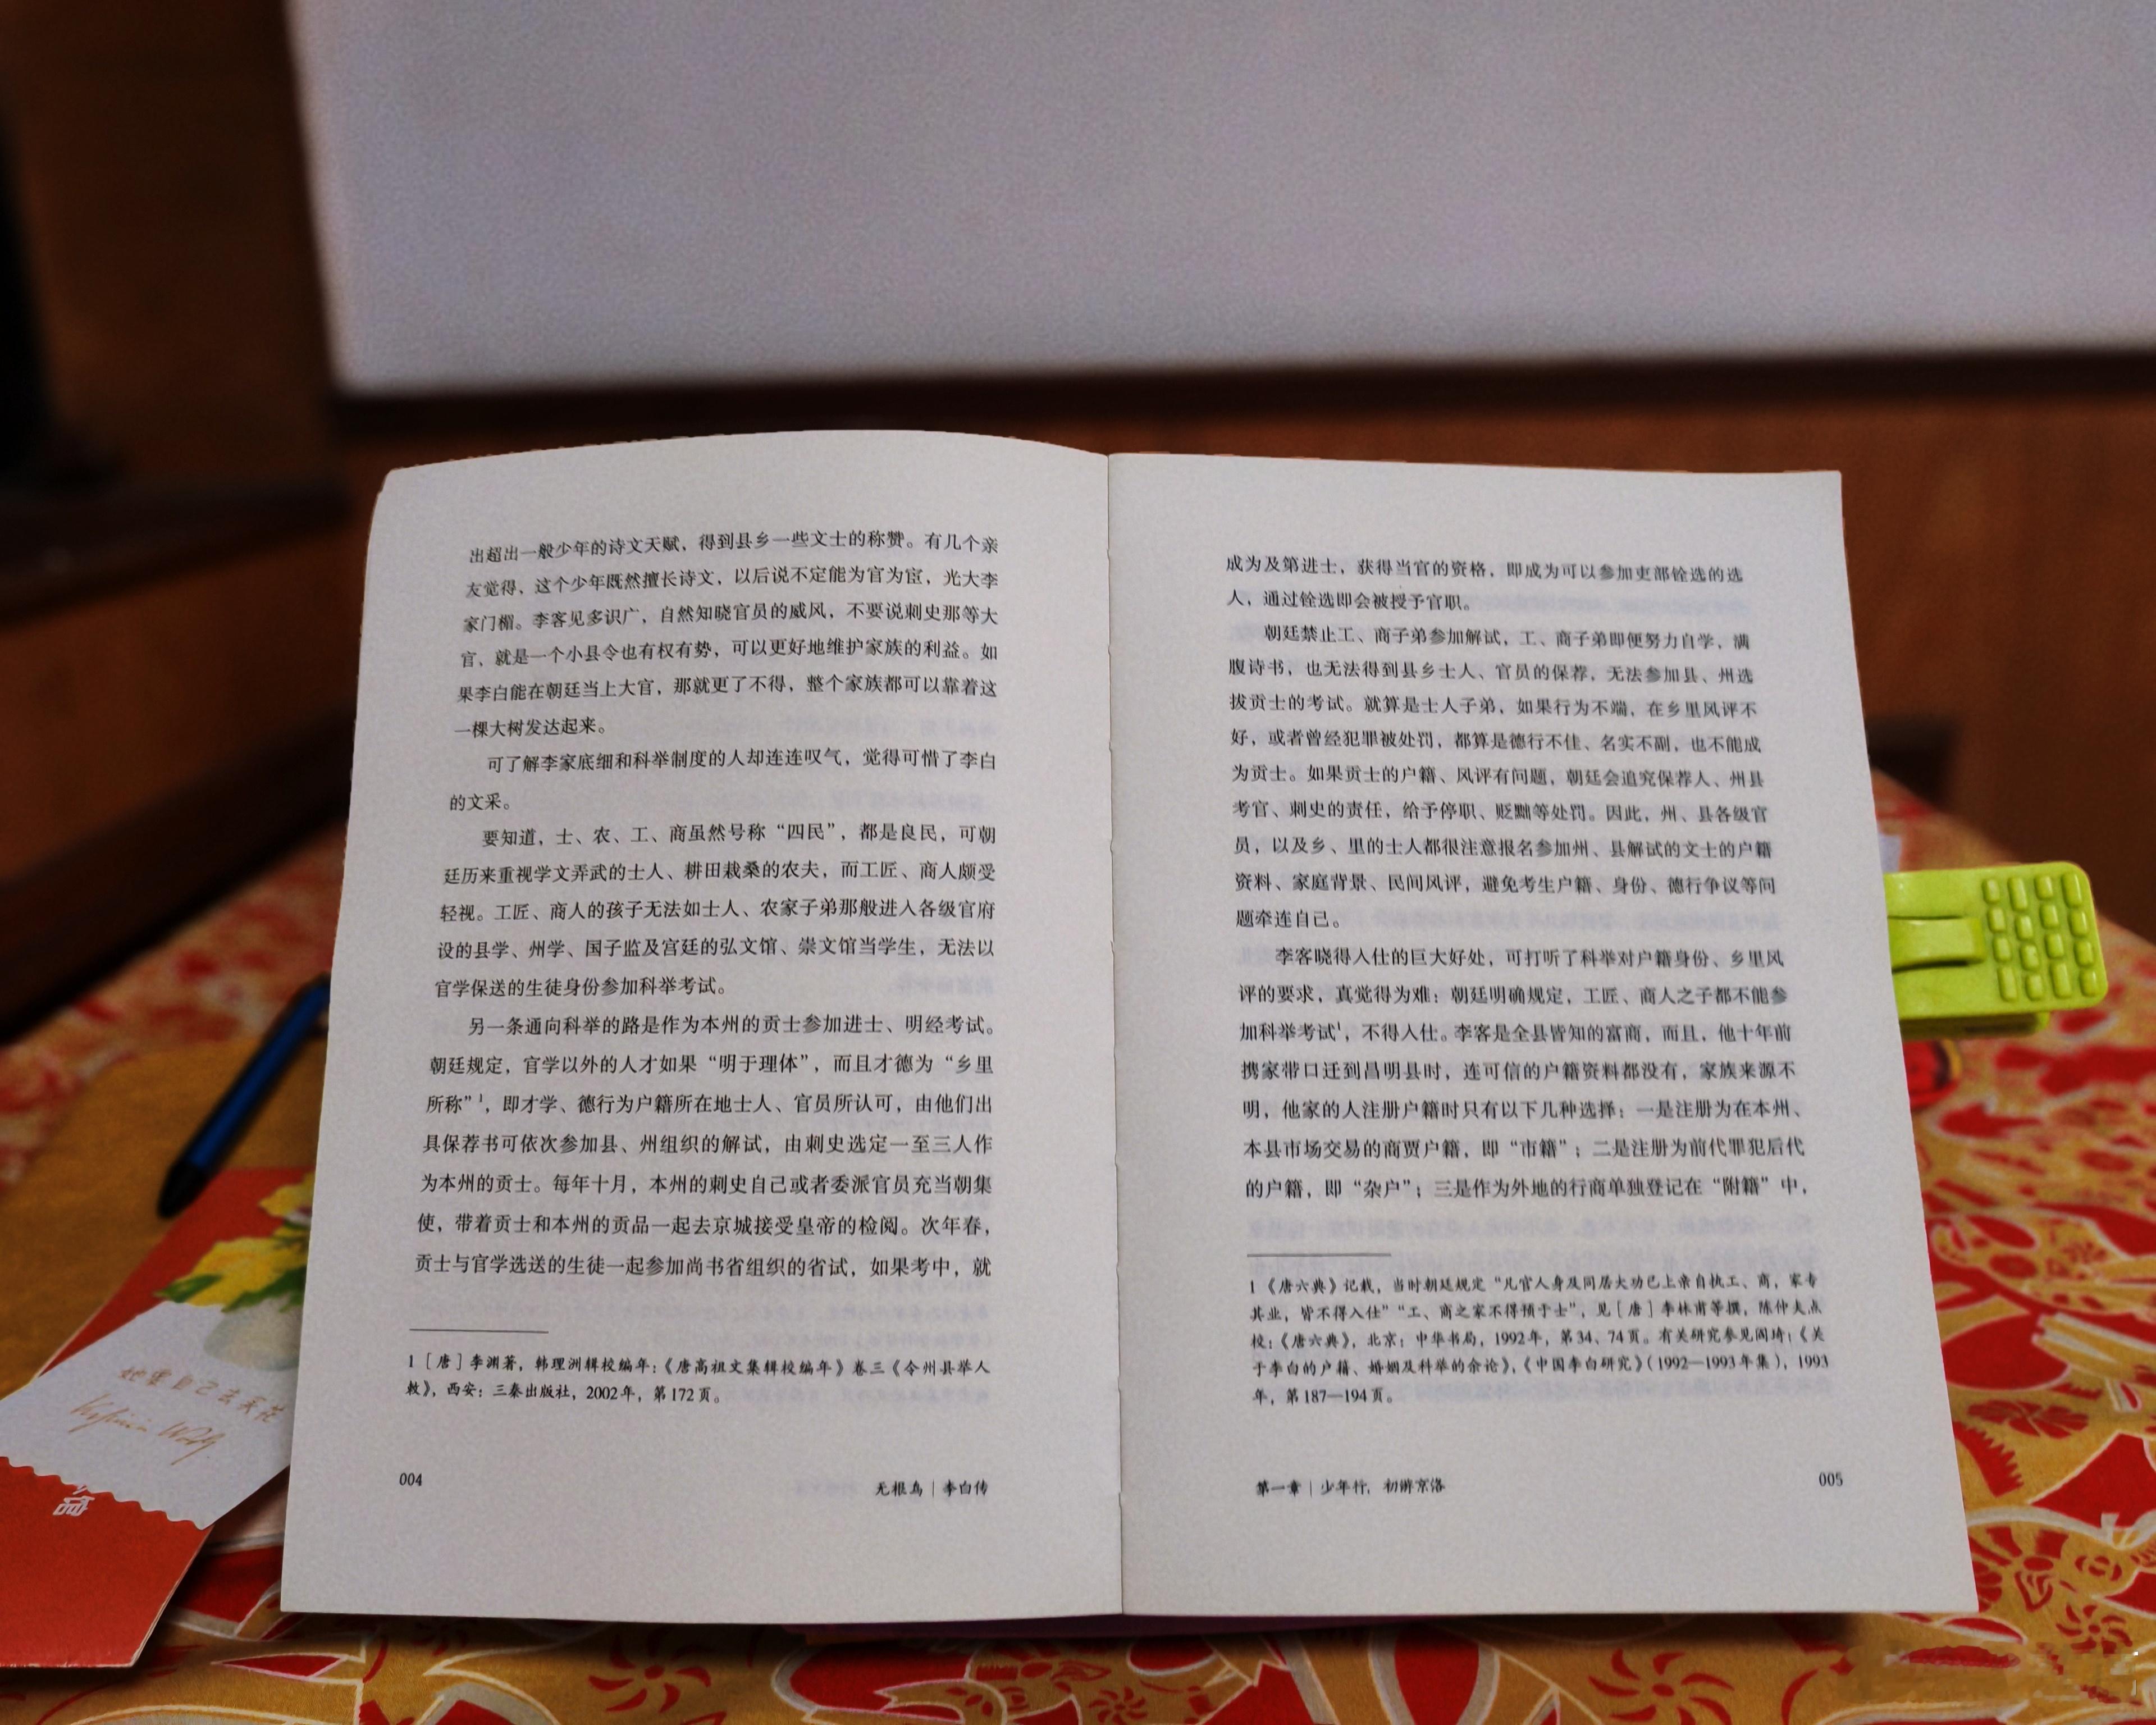 出超出一般少年的诗文天赋，得到县乡一些文士的称赞。有几个亲
友觉得，这个少年既然擅长诗文，以后说不定能为官为宦，光大李
家门楣。李客见多识广，自然知晓官员的威风，不要说刺史那等大
官，就是一个小县令也有权有势，可以更好地维护家族的利益。如
果李白能在朝廷当上大官，那就更了不得，整个家族都可以靠着这
一棵大树发达起来。
可了解李家底细和科举制度的人却连连叹气，觉得可惜了李白
的文采。
要知道，士、农、工、商虽然号称“四民”，都是良民，可朝
廷历来重视学文弄武的士人、耕田栽桑的农夫，而工匠、商人颇受
轻视。工匠、商人的孩子无法如士人、农家子弟那般进入各级官府
设的县学、州学、国子监及宫廷的弘文馆、崇文馆当学生，无法以
官学保送的生徒身份参加科举考试。
另一条通向科举的路是作为本州的贡士参加进士、明经考试。
朝廷规定，官学以外的人才如果“明于理体”，而且才德为“乡里
所称”1，即才学、德行为户籍所在地士人、官员所认可，由他们出
具保荐书可依次参加县、州组织的解试，由刺史选定一至三人作
为本州的贡士。每年十月，本州的刺史自己或者委派官员充当朝集
使，带着贡士和本州的贡品一起去京城接受皇帝的检阅。次年春，
贡士与官学选送的生徒一起参加尚书省组织的省试，如果考中，就
1［唐］李渊著，韩理洲辑校编年：《唐高祖文集辑校编年》卷三《令州县举人
敕》，西安：三秦出版社，2002年，第172页。
004
无根鸟｜李白传
成为及第进士，获得当官的资格，即成为可以参加吏部铨选的选
人，通过铨选即会被授予官职。
朝廷禁止工、商子弟参加解试，工、商子弟即便努力自学，满
腹诗书，也无法得到县乡士人、官员的保荐，无法参加县、州选
拔贡士的考试。就算是士人子弟，如果行为不端，在乡里风评不
好，或者曾经犯罪被处罚，都算是德行不佳、名实不副，也不能成
为贡士。如果贡士的户籍、风评有问题，朝廷会追究保荐人、州县
考官、刺史的责任，给予停职、贬黜等处罚。因此，州、县各级官
员，以及乡、里的士人都很注意报名参加州、县解试的文士的户籍
资料、家庭背景、民间风评，避免考生户籍、身份、德行争议等问
题牵连自己。
李客晓得入仕的巨大好处，可打听了科举对户籍身份、乡里风
评的要求，真觉得为难：朝廷明确规定，工匠、商人之子都不能参
加科举考试1，不得入仕。李客是全县皆知的富商，而且，他十年前
携家带口迁到昌明县时，连可信的户籍资料都没有，家族来源不
明，他家的人注册户籍时只有以下几种选择：一是注册为在本州、
本县市场交易的商贾户籍，即“市籍”；二是注册为前代罪犯后代
的户籍，即“杂户”；三是作为外地的行商单独登记在“附籍”中，
1《唐六典》记载，当时朝廷规定“凡官人身及同居大功已上亲自执工、商，家专
其业，皆不得入仕”“工、商之家不得预于士”，见［唐］李林甫等撰，陈仲夫点
校：《唐六典》，北京：中华书局，1992年，第34、74页。有关研究参见阎琦：《关
于李白的户籍、婚姻及科举的余论》，《中国李白研究》（1992—1993年集），1993
年，第187—194页。
第一章｜少年行，初游京洛
005
她要自己去买花